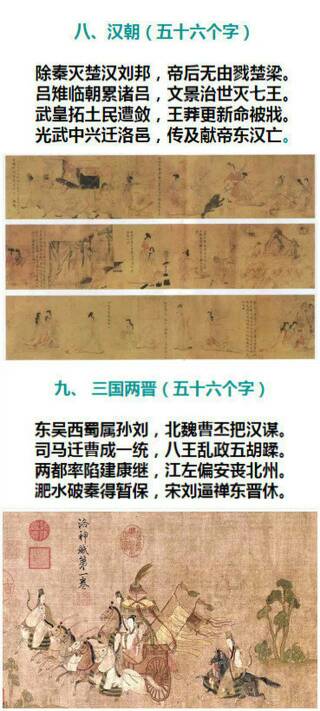 八、汉朝（五十六个字）
除秦灭楚汉刘邦，帝后无由戮楚梁。
吕雉临朝累诸吕，文景治世灭七王。
武皇拓土民遭敛，王莽更新命被戕。
光武中兴迁洛邑，传及献帝东汉亡。
九、三国两晋（五十六个字）
东吴西蜀属孙刘，北魏曹丕把汉谋。
司马迁曹成一统，八王乱政五胡蹂。
两都率陷建康继，江左偏安丧北州。
淝水破秦得暂保，宋刘逼禅东晋休。
洛神赋第一卷